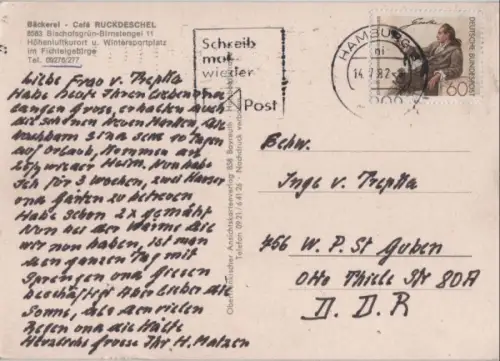 Bäckerei - Café RUCKDESCHEL
8583 Bischofsgrün-Birnstengel 11
Höhenluftkurort u. Wintersportplatz
im Fichtelgebirge
Tel. 09276/277
Liebe Frau v. Treptka
Habe heute Ihren lieben
langen Grose, erhalten auch
die schönen neuen Marken. Die
Nachbarn sind seit 10 Tagen
auf Urlaub, kommen am
wieder Heim. Nun habe
ich für 3 Wochen, zwei Häuser
und Gärten zu betreuen
Habe schon 2x gemäht
Nun bei der Wärme die
wir nun haben, ist man
den ganzen Tag mit
Sprengen und giesen
beschäftigt Aber lieber die
Sonne, als den vielen
Regen und die Kälte
Herzliche grose Ihr H. Matzen
Oberfränkischer Ansichtskartenverlag 858 Bayreuth
Telefon 09 21 / 6 41 26 - Nachdruck verboten
Schreib
mal
wieder
Post
HAMBURG
14.7.82
Goethe
DEUTSCHE BUNDESPOST
60
Inge v. Treptka
756 W. P. St Guben
Otto Thiele Str 80A
D. D. R